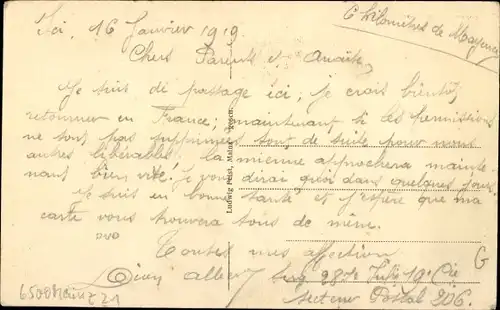 Ici, 16 Janvier 1919.
6 kilomètres de Mayence
Chers Parents et
Je suis de passage ici; je crois bientôt
retourner en France; maintenant si les permissions
ne sont pas supprimées tout de suite pour nous
autres libérables, la mienne approchera mainte-
nant bien vite. Je vous dirai quoi dans quelques jours.
Je suis en bonne santé et j'espère que ma
carte vous trouvera tous de même.
Toutes mes affection
28e 19e Cie
Secteur Postal 206.
Ludwig Feist, Mainz
6500 Mainz 21
G